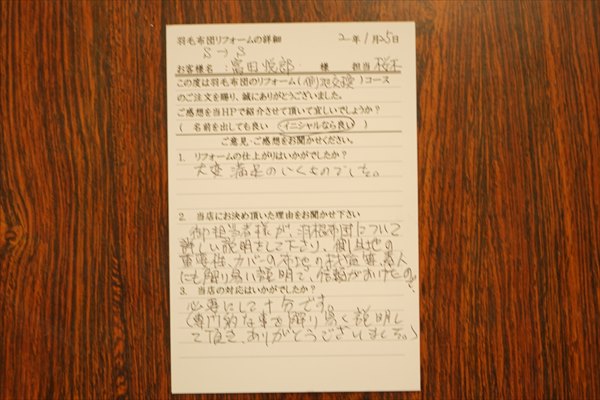 羽毛布団リフォームの詳細 2年1月25日
S→S
お客様名:富田悦郎 様 担当 桜木
この度は羽毛布団のリフォーム(側羽交換)コース
のご注文を賜り、誠にありがとうございました。
ご感想を当HPで紹介させて頂いて宜しいでしょうか?
( 名前を出しても良い イニシャルなら良い )
ご意見・ご感想をお聞かせください。
1. リフォームの仕上がりはいかがでしたか?
大変満足のいくものでした。
2. 当店にお決め頂いた理由をお聞かせ下さい
御担当者様が、羽根布団について
詳しい説明をして下さり、側生地の
重要性、カバーの布地の材質等、素人
にも解り易い説明で、信頼がおけたの
3. 当店の対応はいかがでしたか?
必要にして十分です。
(専門的な事を解り易く説明し
て頂き、ありがとうございました。)